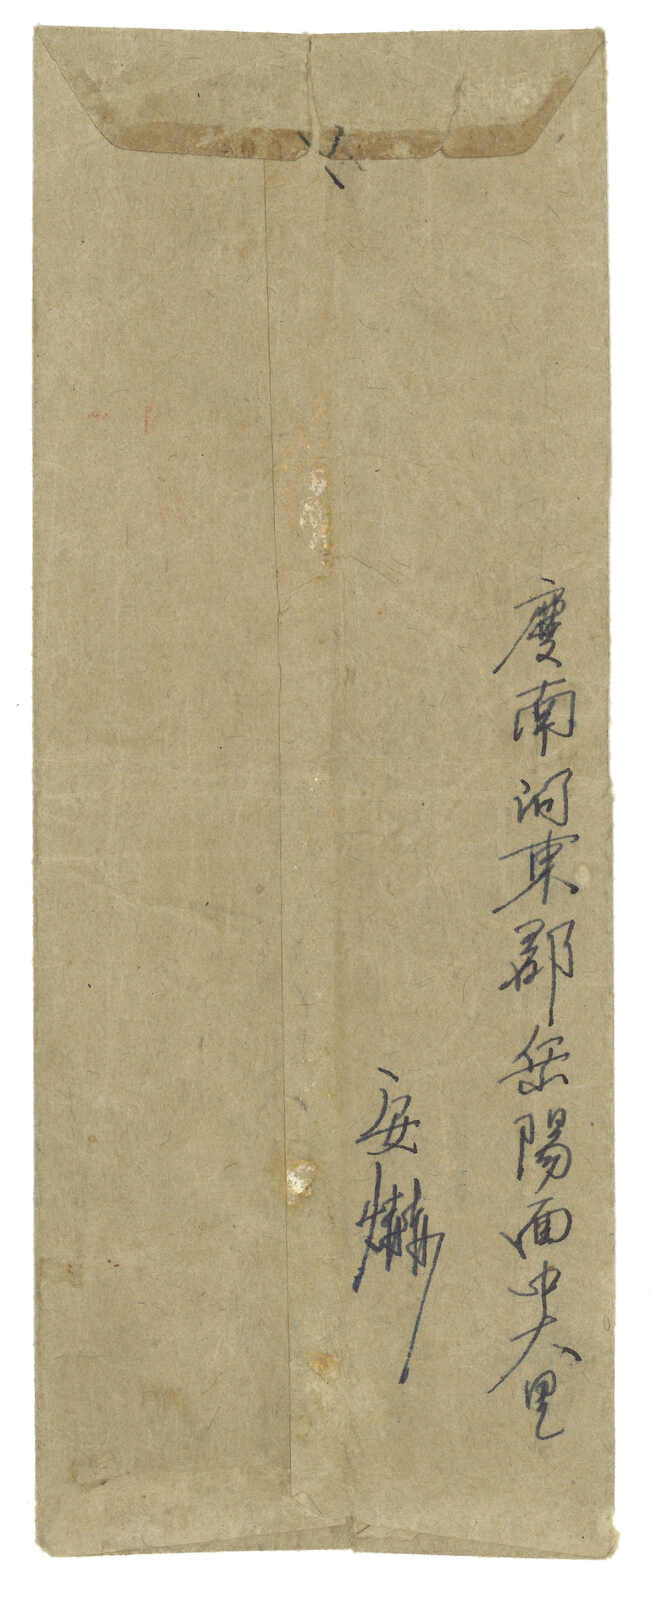 慶南河東郡岳陽面中大里
安爀